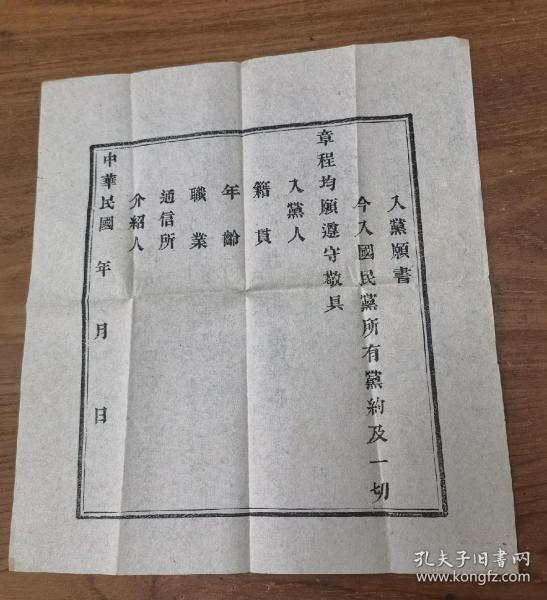 入黨願書
今入國民黨所有黨約及一切
章程均願遵守敬具
入黨人
籍貫
年齡
職業
通信所
介紹人
中華民國 年 月 日
孔夫子旧书网
www.kongfz.com